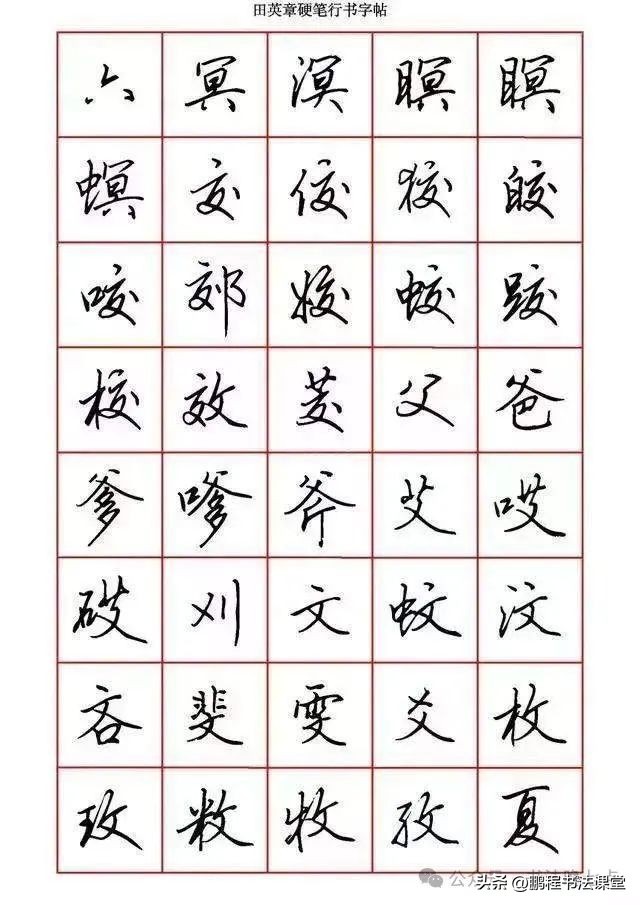 田英章硬笔行书字帖
六 冥 溟 暝 瞑
螟 交 佼 狡 皎
咬 郊 姣 蛟 跤
校 效 茭 父 爸
爹 嗲 斧 艾 哎
砹 刈 文 蚊 汶
吝 斐 雯 爻 枚
玫 敉 牧 孜 夏
头条@鹏程书法课堂